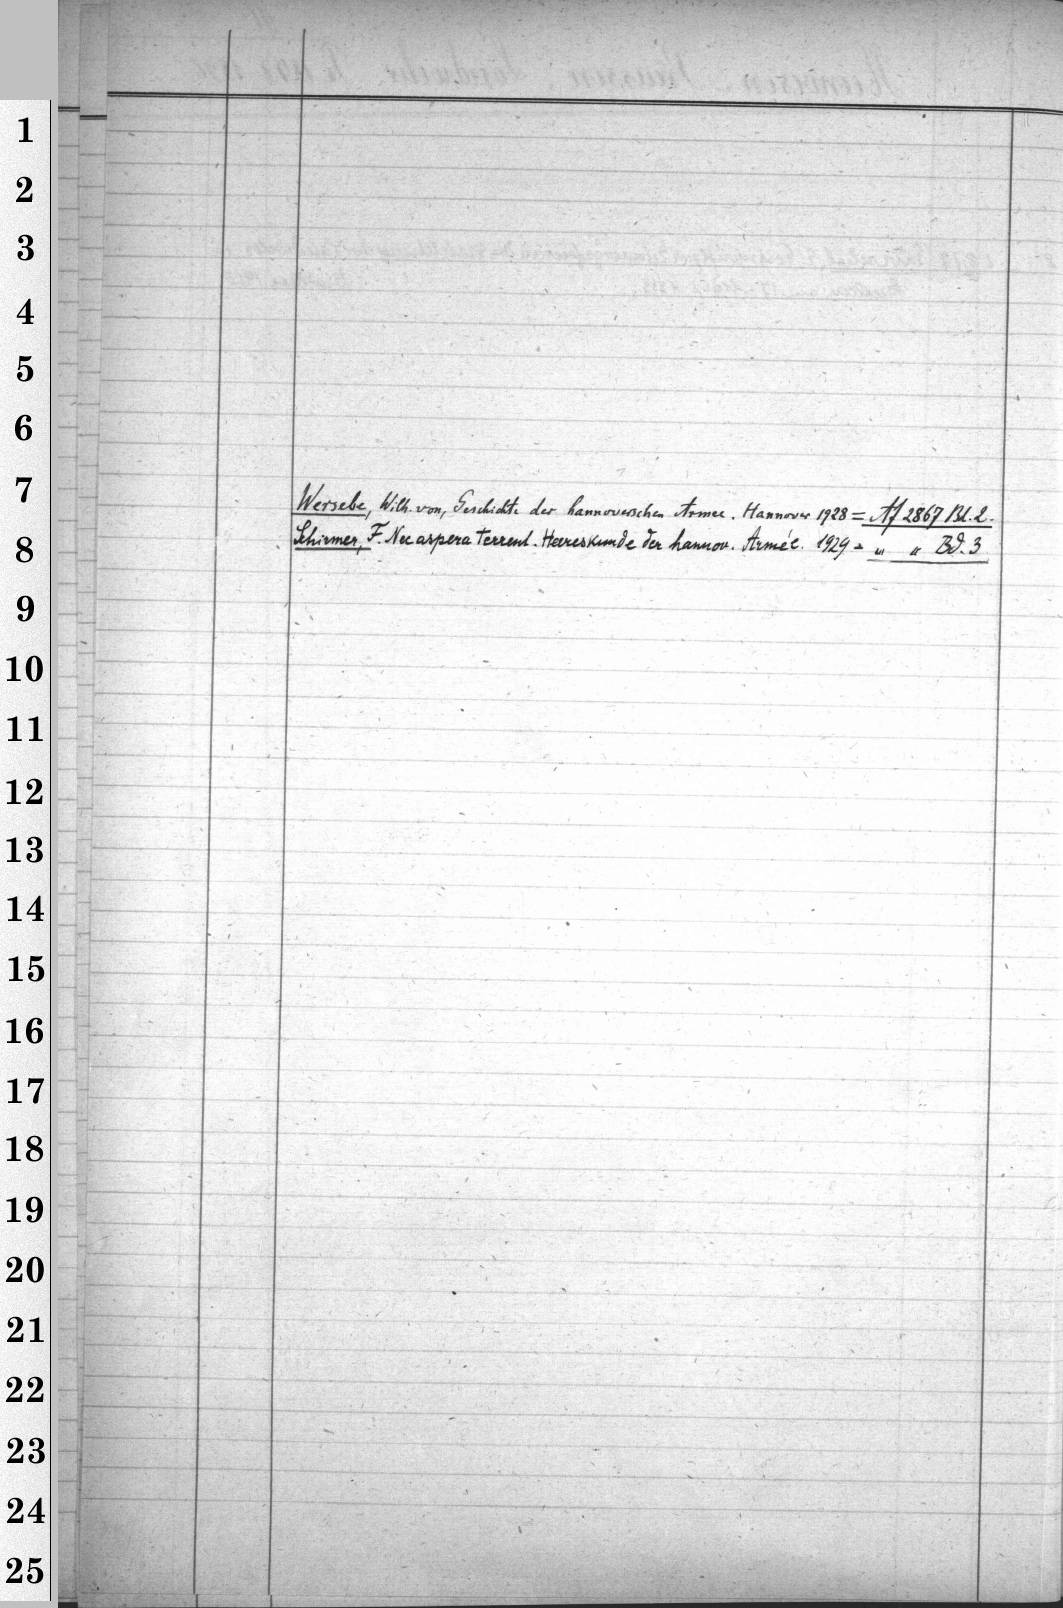 1
2
3
4
5
6
7
Wersebe, Wilh. von, Geschichte der hannoverschen Armee. Hannover 1928 = Af 2867 Bd. 2.
8
Schirmer, F. Nec aspera terrent. Heereskunde der hannov. Armée. 1929 = " " Bd. 3
9
10
11
12
13
14
15
16
17
18
19
20
21
22
23
24
25